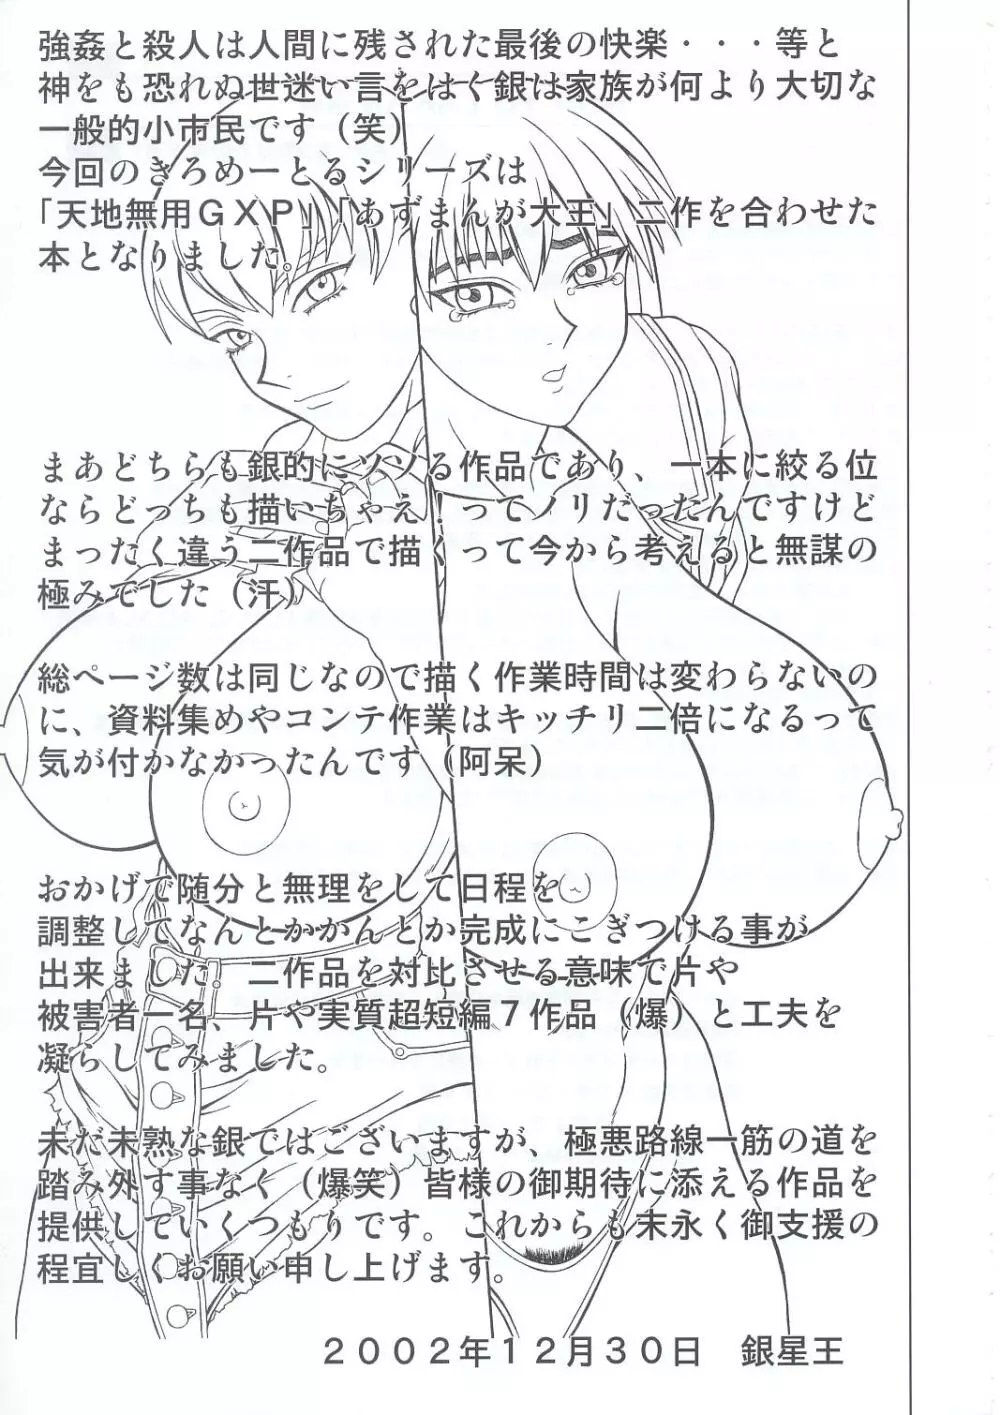 強姦と殺人は人間に残された最後の快楽・・・等と
神をも恐れぬ世迷い言をはく銀は家族が何より大切な
一般的小市民です（笑）
今回のきろめーとるシリーズは
「天地無用ＧＸＰ」「あずまんが大王」二作を合わせた
本となりました。
まあどちらも銀的にソソる作品であり、一本に絞る位
ならどっちも描いちゃえ！ってノリだったんですけど
まったく違う二作品で描くって今から考えると無謀の
極みでした（汗）
総ページ数は同じなので描く作業時間は変わらないの
に、資料集めやコンテ作業はキッチリ二倍になるって
気が付かなかったんです（阿呆）
おかげで随分と無理をして日程を
調整してなんとかかんとか完成にこぎつける事が
出来ました。二作品を対比させる意味で片や
被害者一名、片や実質超短編７作品（爆）と工夫を
凝らしてみました。
未だ未熟な銀ではございますが、極悪路線一筋の道を
踏み外す事なく（爆笑）皆様の御期待に添える作品を
提供していくつもりです。これからも末永く御支援の
程宜しくお願い申し上げます。
２００２年１２月３０日　銀星王